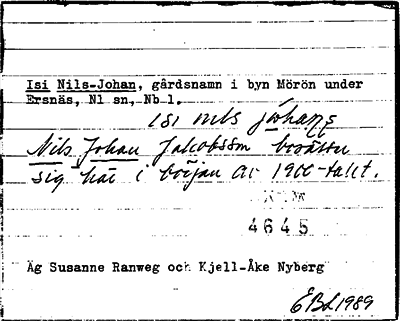 Isi Nils-Johan, gårdsnamn i byn Mörön under
Ersnäs, Nl sn, Nb l.
isi nils johans
Nils Johan Jakobsson bosatte
sig här i början av 1900-talet.
4645
Äg Susanne Ranweg och Kjell-Åke Nyberg
EBL 1989